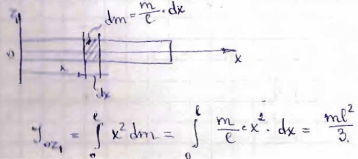 dm = m/ℓ · dx
x
x
dx
J_oz₁ = ∫₀^ℓ x² dm = ∫₀^ℓ m/ℓ · x² · dx = mℓ²/3.